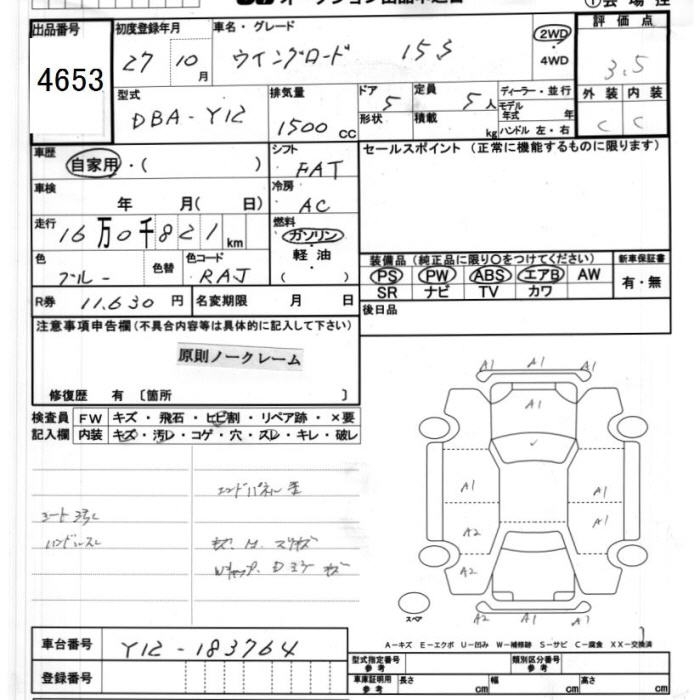 出品番号
4653
初度登録年月
27 10月
車名・グレード
ウイングロード 15S
2WD
・
4WD
評価点
3.5
型式
DBA-Y12
排気量
1500cc
ドア
5
形状
定員
5人
積載
kg
ディーラー・並行
モデル年式 年
ハンドル 左・右
外装 内装
C C
車歴
自家用・( )
シフト
FAT
セールスポイント(正常に機能するものに限ります)
車検
年 月( 日)
冷房
AC
走行
16万0千821km
燃料
ガソリン
・
軽油
( )
色
ブルー
色替
色コード
RAJ
装備品(純正品に限り○をつけてください)
新車保証書
PS PW ABS エアB AW
SR ナビ TV カワ
有・無
R券 11,630円
名変期限 月 日
後日品
注意事項申告欄(不具合内容等は具体的に記入して下さい)
原則ノークレーム
修復歴 有 〔箇所 〕
検査員記入欄
FW キズ・飛石・ヒビ割・リペア跡・×要
内装 キズ・汚レ・コゲ・穴・スレ・キレ・破レ
A1 A1 A1
A1
A1 A1
A2 A1
A2 A2
A1 A1 A1
スペア
A-キズ E-エクボ U-凹み W-補修跡 S-サビ C-腐食 XX-交換済
車台番号
Y12-183764
登録番号
型式指定番号
参考
類別区分番号
参考
車庫証明用
参考
長さ cm
幅 cm
高さ cm